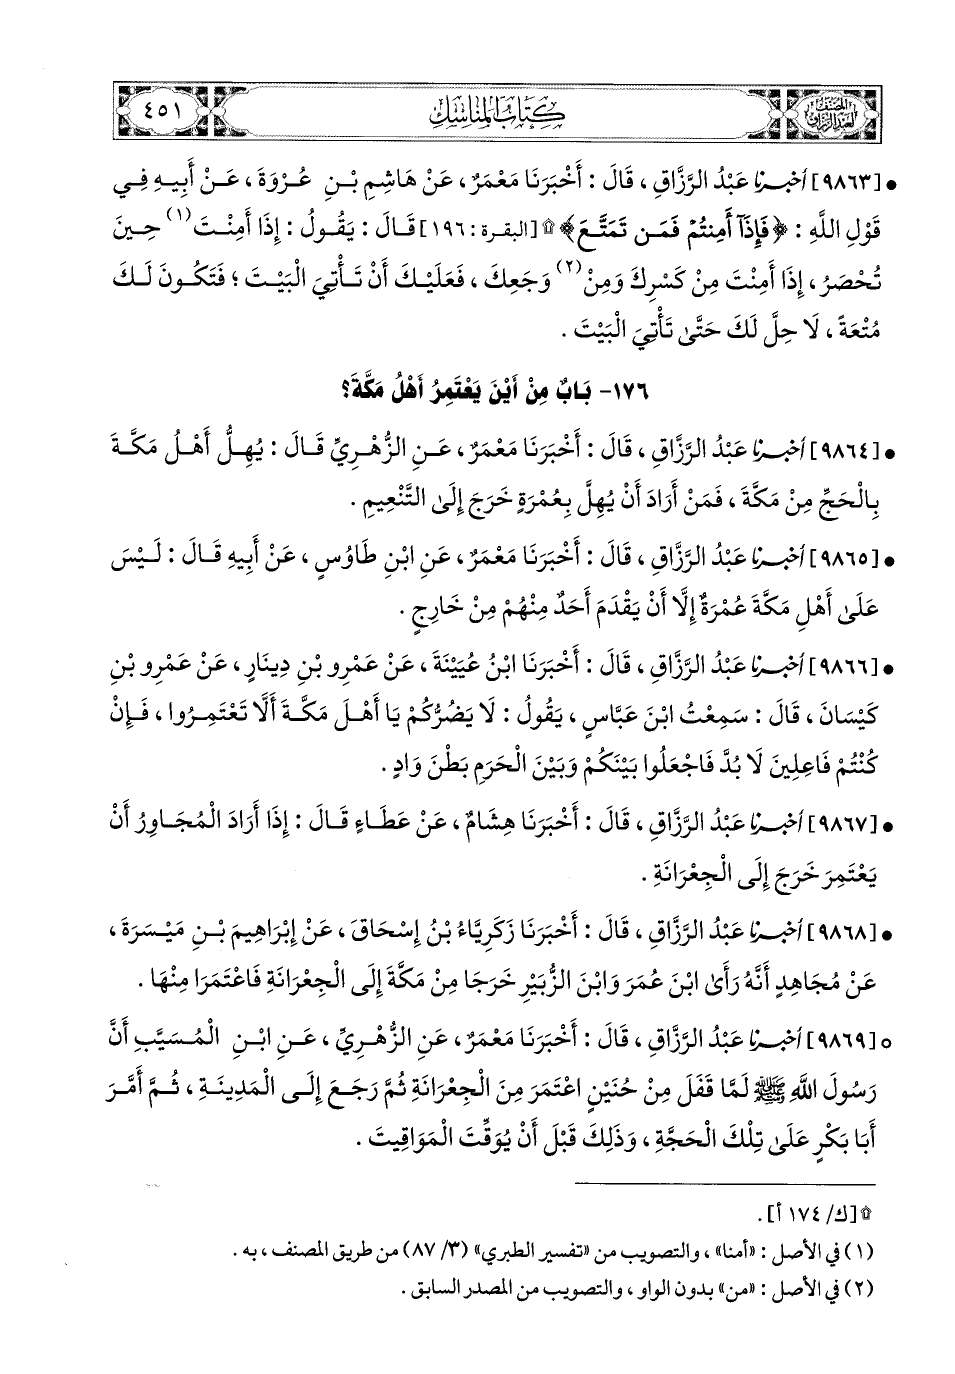 المصنف
لعبد الرزاق
كتاب المناسك
٤٥١
• [٩٨٦٣] أخبرنا عَبْدُ الرَّزَّاقِ ، قَالَ : أَخْبَرَنَا مَعْمَرٌ ، عَنْ هَاشِمِ بْنِ عُرْوَةَ ، عَنْ أَبِيهِ فِي
قَوْلِ اللَّهِ : ﴿فَإِذَآ أَمِنتُمْ فَمَن تَمَتَّعَ﴾ ۩ [البقرة : ١٩٦] قَالَ : يَقُولُ : إِذَا أَمِنْتَ (١) حِينَ
تُحْصَرُ ، إِذَا أَمِنْتَ مِنْ كَسْرِكَ وَمِنْ (٢) وَجَعِكَ ، فَعَلَيْكَ أَنْ تَأْتِيَ الْبَيْتَ ؛ فَتَكُونَ لَكَ
مُتْعَةً ، لَا حِلَّ لَكَ حَتَّىٰ تَأْتِيَ الْبَيْتَ .
١٧٦- بَابٌ مِنْ أَيْنَ يَعْتَمِرُ أَهْلُ مَكَّةَ؟
• [٩٨٦٤] أخبرنا عَبْدُ الرَّزَّاقِ ، قَالَ : أَخْبَرَنَا مَعْمَرٌ ، عَنِ الزُّهْرِيِّ قَالَ : يُهِلُّ أَهْلُ مَكَّةَ
بِالْحَجِّ مِنْ مَكَّةَ ، فَمَنْ أَرَادَ أَنْ يُهِلَّ بِعُمْرَةٍ خَرَجَ إِلَى التَّنْعِيمِ .
• [٩٨٦٥] أخبرنا عَبْدُ الرَّزَّاقِ ، قَالَ : أَخْبَرَنَا مَعْمَرٌ ، عَنِ ابْنِ طَاوُسٍ ، عَنْ أَبِيهِ قَالَ : لَيْسَ
عَلَىٰ أَهْلِ مَكَّةَ عُمْرَةٌ إِلَّا أَنْ يَقْدَمَ أَحَدٌ مِنْهُمْ مِنْ خَارِجٍ .
• [٩٨٦٦] أخبرنا عَبْدُ الرَّزَّاقِ ، قَالَ : أَخْبَرَنَا ابْنُ عُيَيْنَةَ ، عَنْ عَمْرِو بْنِ دِينَارٍ ، عَنْ عَمْرِو بْنِ
كَيْسَانَ ، قَالَ : سَمِعْتُ ابْنَ عَبَّاسٍ ، يَقُولُ : لَا يَضُرُّكُمْ يَا أَهْلَ مَكَّةَ أَلَّا تَعْتَمِرُوا ، فَإِنْ
كُنْتُمْ فَاعِلِينَ لَا بُدَّ فَاجْعَلُوا بَيْنَكُمْ وَبَيْنَ الْحَرَمِ بَطْنَ وَادٍ .
• [٩٨٦٧] أخبرنا عَبْدُ الرَّزَّاقِ ، قَالَ : أَخْبَرَنَا هِشَامٌ ، عَنْ عَطَاءٍ قَالَ : إِذَا أَرَادَ الْمُجَاوِرُ أَنْ
يَعْتَمِرَ خَرَجَ إِلَى الْجِعْرَانَةِ .
• [٩٨٦٨] أخبرنا عَبْدُ الرَّزَّاقِ ، قَالَ : أَخْبَرَنَا زَكَرِيَّاءُ بْنُ إِسْحَاقَ ، عَنْ إِبْرَاهِيمَ بْنِ مَيْسَرَةَ ،
عَنْ مُجَاهِدٍ أَنَّهُ رَأَىٰ ابْنَ عُمَرَ وَابْنَ الزُّبَيْرِ خَرَجَا مِنْ مَكَّةَ إِلَى الْجِعْرَانَةِ فَاعْتَمَرَا مِنْهَا .
○ [٩٨٦٩] أخبرنا عَبْدُ الرَّزَّاقِ ، قَالَ : أَخْبَرَنَا مَعْمَرٌ ، عَنِ الزُّهْرِيِّ ، عَنِ ابْنِ الْمُسَيَّبِ أَنَّ
رَسُولَ اللَّهِ ﷺ لَمَّا قَفَلَ مِنْ حُنَيْنٍ اعْتَمَرَ مِنَ الْجِعْرَانَةِ ثُمَّ رَجَعَ إِلَى الْمَدِينَةِ ، ثُمَّ أَمَّرَ
أَبَا بَكْرٍ عَلَىٰ تِلْكَ الْحَجَّةِ ، وَذَلِكَ قَبْلَ أَنْ يُوَقِّتَ الْمَوَاقِيتَ .
۩ [ك/ ١٧٤ أ] .
(١) في الأصل : «أمنا» ، والتصويب من «تفسير الطبري» (٣/ ٨٧) من طريق المصنف ، به .
(٢) في الأصل : «من» بدون الواو ، والتصويب من المصدر السابق .